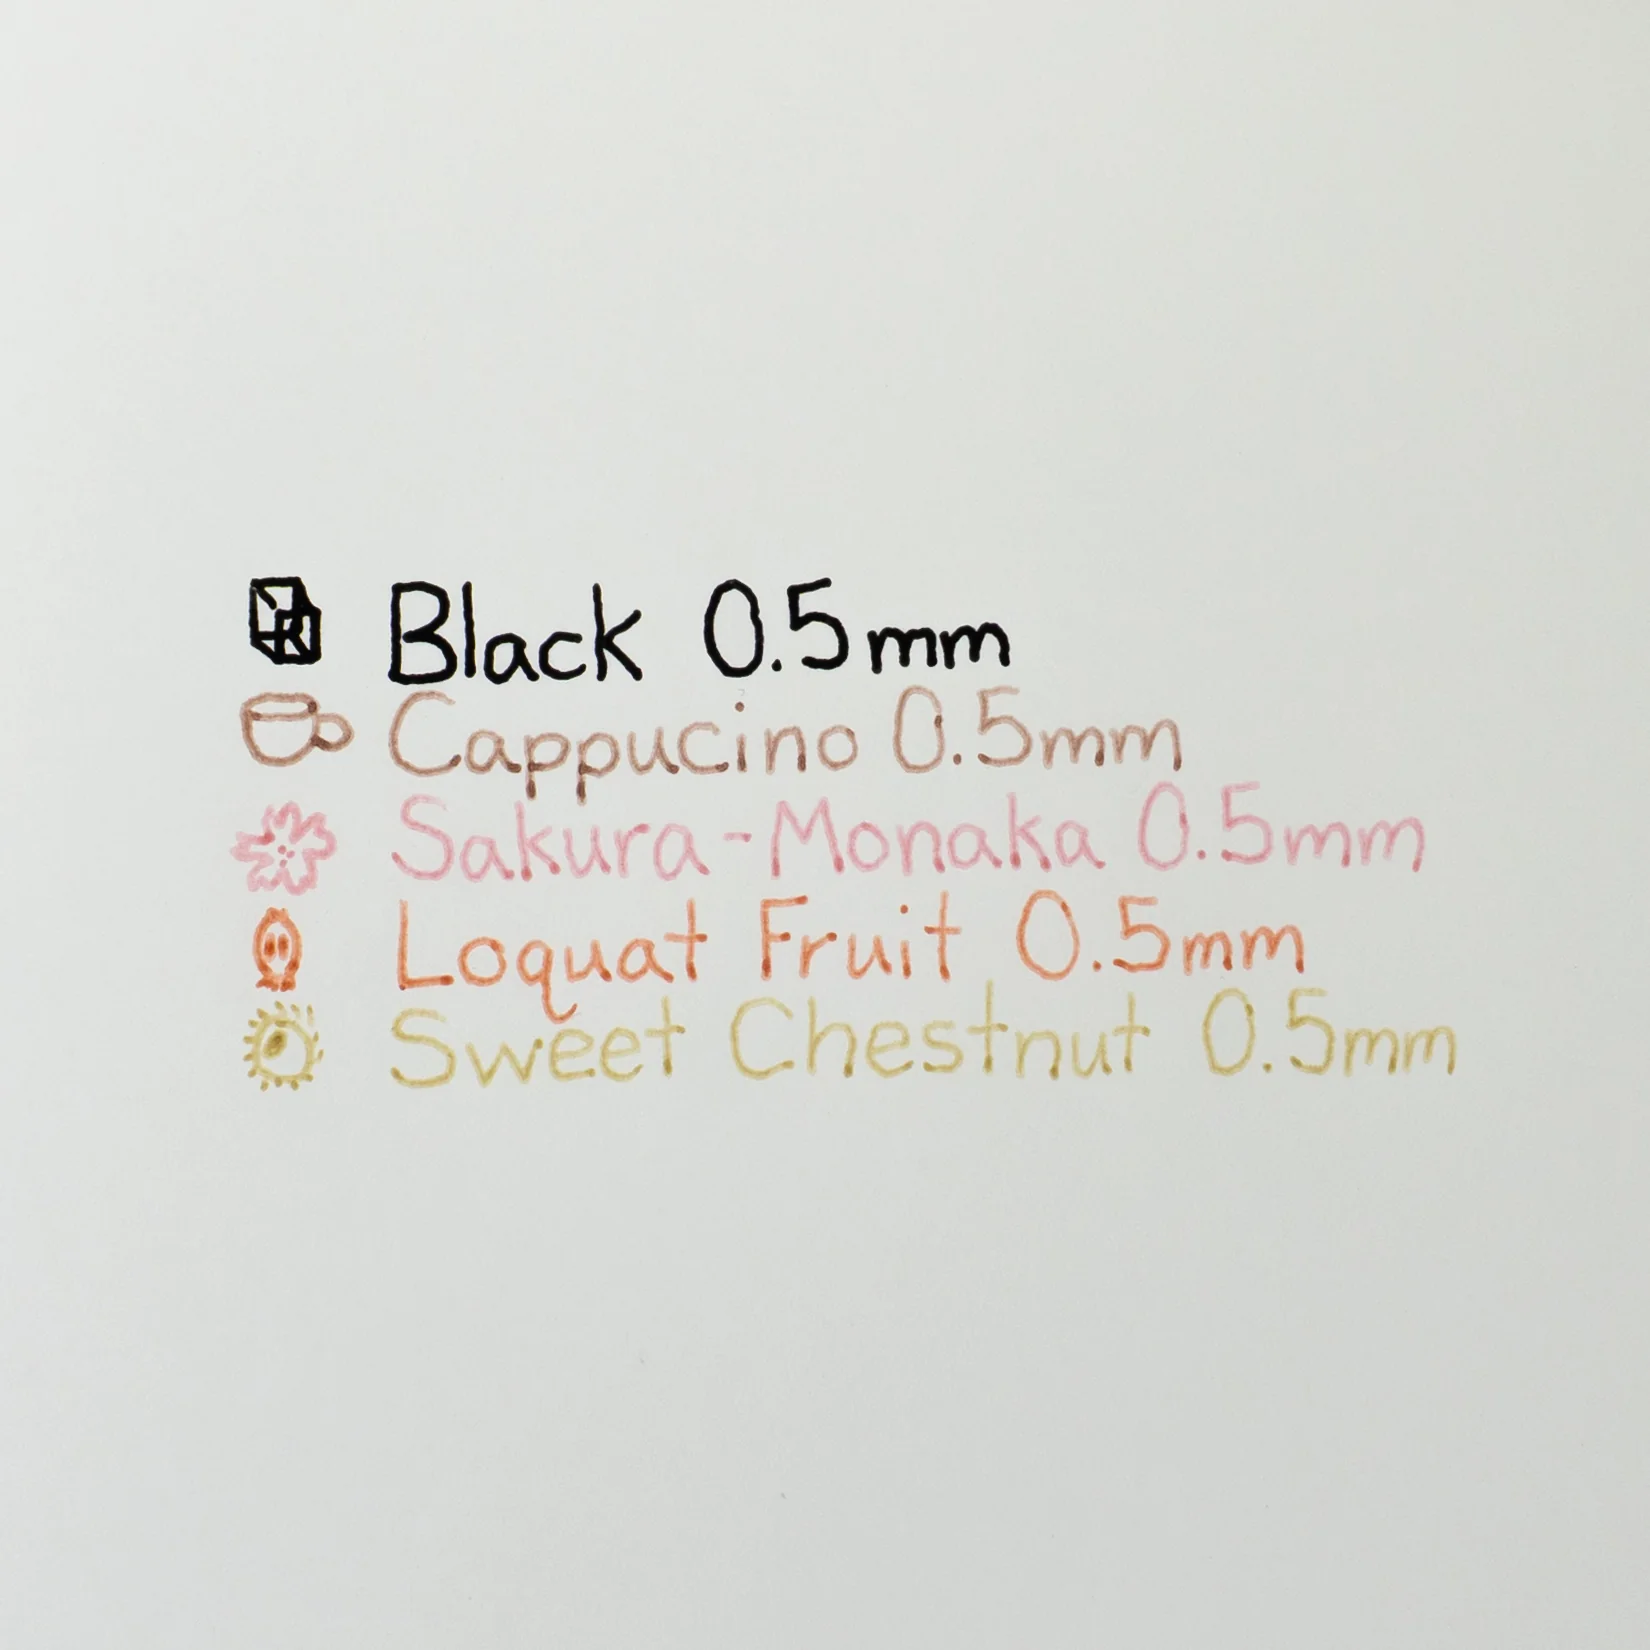 Black 0.5mm
Cappucino 0.5mm
Sakura-Monaka 0.5mm
Loquat Fruit 0.5mm
Sweet Chestnut 0.5mm